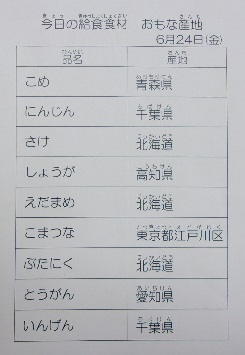 今日の給食食材 おもな産地
6月24日(金)
品名 産地
こめ 青森県
にんじん 千葉県
さけ 北海道
しょうが 高知県
えだまめ 北海道
こまつな 東京都江戸川区
ぶたにく 北海道
とうがん 愛知県
いんげん 千葉県